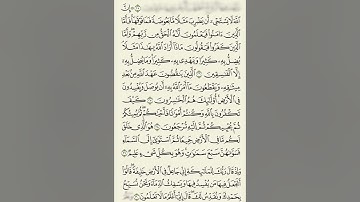 ۞ إِنَّ
ٱللَّهَ لَا يَسْتَحْىِۦٓ أَن يَضْرِبَ مَثَلًا مَّا بَعُوضَةً فَمَا فَوْقَهَا فَأَمَّا
ٱلَّذِينَ ءَامَنُوا۟ فَيَعْلَمُونَ أَنَّهُ ٱلْحَقُّ مِن رَّبِّهِمْ وَأَمَّا
ٱلَّذِينَ كَفَرُوا۟ فَيَقُولُونَ مَاذَآ أَرَادَ ٱللَّهُ بِهَـٰذَا مَثَلًا
يُضِلُّ بِهِۦ كَثِيرًا وَيَهْدِى بِهِۦ كَثِيرًا وَمَا يُضِلُّ بِهِۦٓ
إِلَّا ٱلْفَـٰسِقِينَ ٢٦ ٱلَّذِينَ يَنقُضُونَ عَهْدَ ٱللَّهِ مِنۢ بَعْدِ
مِيثَـٰقِهِۦ وَيَقْطَعُونَ مَآ أَمَرَ ٱللَّهُ بِهِۦٓ أَن يُوصَلَ وَيُفْسِدُونَ
فِى ٱلْأَرْضِ أُو۟لَـٰٓئِكَ هُمُ ٱلْخَـٰسِرُونَ ٢٧ كَيْفَ
تَكْفُرُونَ بِٱللَّهِ وَكُنتُمْ أَمْوَٰتًا فَأَحْيَـٰكُمْ ثُمَّ يُمِيتُكُمْ
ثُمَّ يُحْيِيكُمْ ثُمَّ إِلَيْهِ تُرْجَعُونَ ٢٨ هُوَ ٱلَّذِى خَلَقَ
لَكُم مَّا فِى ٱلْأَرْضِ جَمِيعًا ثُمَّ ٱسْتَوَىٰٓ إِلَى ٱلسَّمَآءِ
فَسَوَّىٰهُنَّ سَبْعَ سَمَـٰوَٰتٍ وَهُوَ بِكُلِّ شَىْءٍ عَلِيمٌ ٢٩
وَإِذْ قَالَ رَبُّكَ لِلْمَلَـٰٓئِكَةِ إِنِّى جَاعِلٌ فِى ٱلْأَرْضِ خَلِيفَةً قَالُوٓا۟
أَتَجْعَلُ فِيهَا مَن يُفْسِدُ فِيهَا وَيَسْفِكُ ٱلدِّمَآءَ وَنَحْنُ نُسَبِّحُ
بِحَمْدِكَ وَنُقَدِّسُ لَكَ قَالَ إِنِّىٓ أَعْلَمُ مَا لَا تَعْلَمُونَ ٣٠